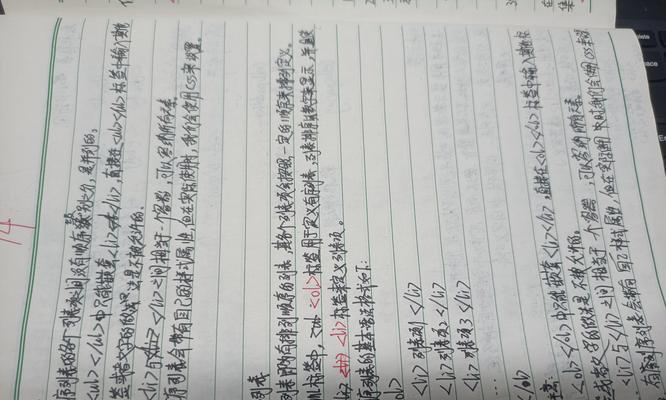 序列表的各个列表项之间没有顺序级别之分，是并列的。
<ul></ul>中只能嵌套<li></li>，直接在<ul></ul>标签中输入其他
签或者文字的做法是不被允许的。
<li>与</li>之间相当于一个容器，可以容纳所有元素。
序列表会带有自己的样式属性，但在实际使用时，我们会使用CSS来设置。
列表
列表即为有排列顺序的列表，其各个列表项会按照一定的顺序来排列定义。
ml标签中，<ol>标签用于定义有序列表，列表排序以数字来显示，并且使
<li>标签来定义列表项。
序列表的基本语法格式如下：
ol>
<li>列表项1</li>
<li>列表项2</li>
<li>列表项3</li>
...
</ol>
<ol></ol>中只能嵌套<li></li>，直接在<ol></ol>标签中输入其他标
签或者文字的做法是不被允许的。
<li>与</li>之间相当于一个容器，可以容纳所有元素。
有序列表会带有自己样式属性，但在实际使用时，我们会使用CSS来设
14